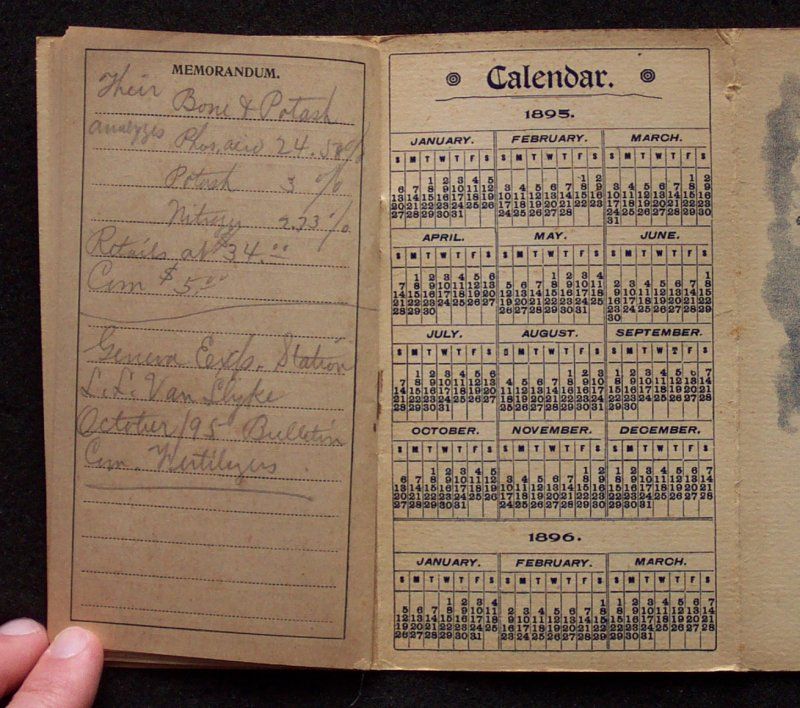 MEMORANDUM.
Their
Bone & Potash
analyzes Phos. acid 24.58%
Potash 3 %
Nitrogen 2.73%
Retails at $34.00
Com $5.00
Geneva Exp. Station
L. L. Van Slyke
October /95 Bulletin
Com. Fertilizers
Calendar.
1895.
JANUARY. FEBRUARY. MARCH.
S M T W T F S S M T W T F S S M T W T F S
1 2 3 4 5 1 2 1 2
6 7 8 9 10 11 12 3 4 5 6 7 8 9 3 4 5 6 7 8 9
13 14 15 16 17 18 19 10 11 12 13 14 15 16 10 11 12 13 14 15 16
20 21 22 23 24 25 26 17 18 19 20 21 22 23 17 18 19 20 21 22 23
27 28 29 30 31 24 25 26 27 28 24 25 26 27 28 29 30
31
APRIL. MAY. JUNE.
S M T W T F S S M T W T F S S M T W T F S
1 2 3 4 5 6 1 2 3 4 1
7 8 9 10 11 12 13 5 6 7 8 9 10 11 2 3 4 5 6 7 8
14 15 16 17 18 19 20 12 13 14 15 16 17 18 9 10 11 12 13 14 15
21 22 23 24 25 26 27 19 20 21 22 23 24 25 16 17 18 19 20 21 22
28 29 30 26 27 28 29 30 31 23 24 25 26 27 28 29
30
JULY. AUGUST. SEPTEMBER.
S M T W T F S S M T W T F S S M T W T F S
1 2 3 4 5 6 1 2 3 1 2 3 4 5 6 7
7 8 9 10 11 12 13 4 5 6 7 8 9 10 8 9 10 11 12 13 14
14 15 16 17 18 19 20 11 12 13 14 15 16 17 15 16 17 18 19 20 21
21 22 23 24 25 26 27 18 19 20 21 22 23 24 22 23 24 25 26 27 28
28 29 30 31 25 26 27 28 29 30 31 29 30
OCTOBER. NOVEMBER. DECEMBER.
S M T W T F S S M T W T F S S M T W T F S
1 2 3 4 5 1 2 1 2 3 4 5 6 7
6 7 8 9 10 11 12 3 4 5 6 7 8 9 8 9 10 11 12 13 14
13 14 15 16 17 18 19 10 11 12 13 14 15 16 15 16 17 18 19 20 21
20 21 22 23 24 25 26 17 18 19 20 21 22 23 22 23 24 25 26 27 28
27 28 29 30 31 24 25 26 27 28 29 30 29 30 31
1896.
JANUARY. FEBRUARY. MARCH.
S M T W T F S S M T W T F S S M T W T F S
1 2 3 4 1 1 2 3 4 5 6 7
5 6 7 8 9 10 11 2 3 4 5 6 7 8 8 9 10 11 12 13 14
12 13 14 15 16 17 18 9 10 11 12 13 14 15 15 16 17 18 19 20 21
19 20 21 22 23 24 25 16 17 18 19 20 21 22 22 23 24 25 26 27 28
26 27 28 29 30 31 23 24 25 26 27 28 29 29 30 31